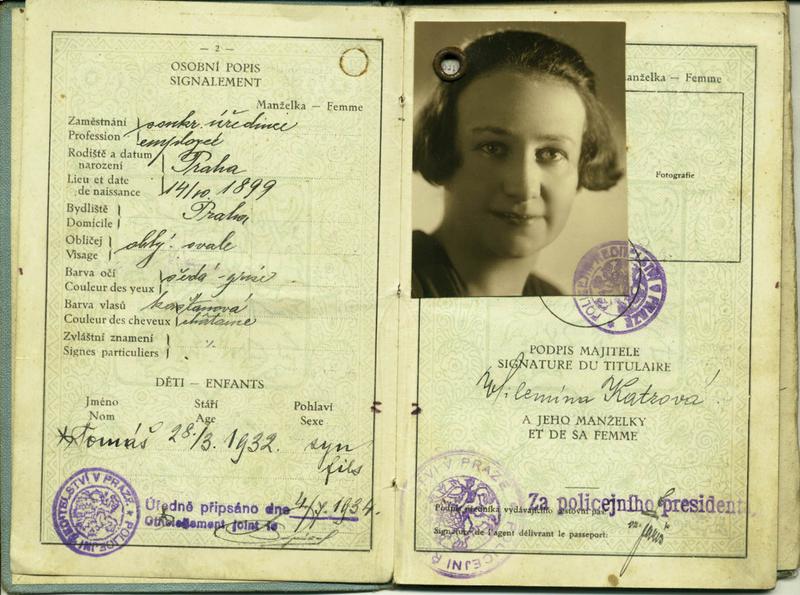 — 2 —
OSOBNÍ POPIS
SIGNALEMENT
Manželka — Femme
Zaměstnání
soukr. úřednice
Profession
employée
Rodiště a datum
narození
Praha
Lieu et date
de naissance
14/10 1899
Bydliště
Domicile
Praha
Obličej
Visage
oblý - ovale
Barva očí
Couleur des yeux
šedá - grise
Barva vlasů
kaštanová
Couleur des cheveux
châtaine
Zvláštní znamení
Signes particuliers
DĚTI — ENFANTS
Jméno Stáří Pohlaví
Nom Age Sexe
Tomáš 28./3. 1932. syn
fils
POLICEJNÍ ŘEDITELSTVÍ V PRAZE
Úředně připsáno dne 1934.
joint le
Manželka — Femme
Fotografie
V PRAZE
PODPIS MAJITELE
SIGNATURE DU TITULAIRE
Vilemína Katzová
A JEHO MANŽELKY
ET DE SA FEMME
Za policejního presidenta
Podpis úředníka vydávajícího cestovní pas
Signature de l'agent délivrant le passeport: